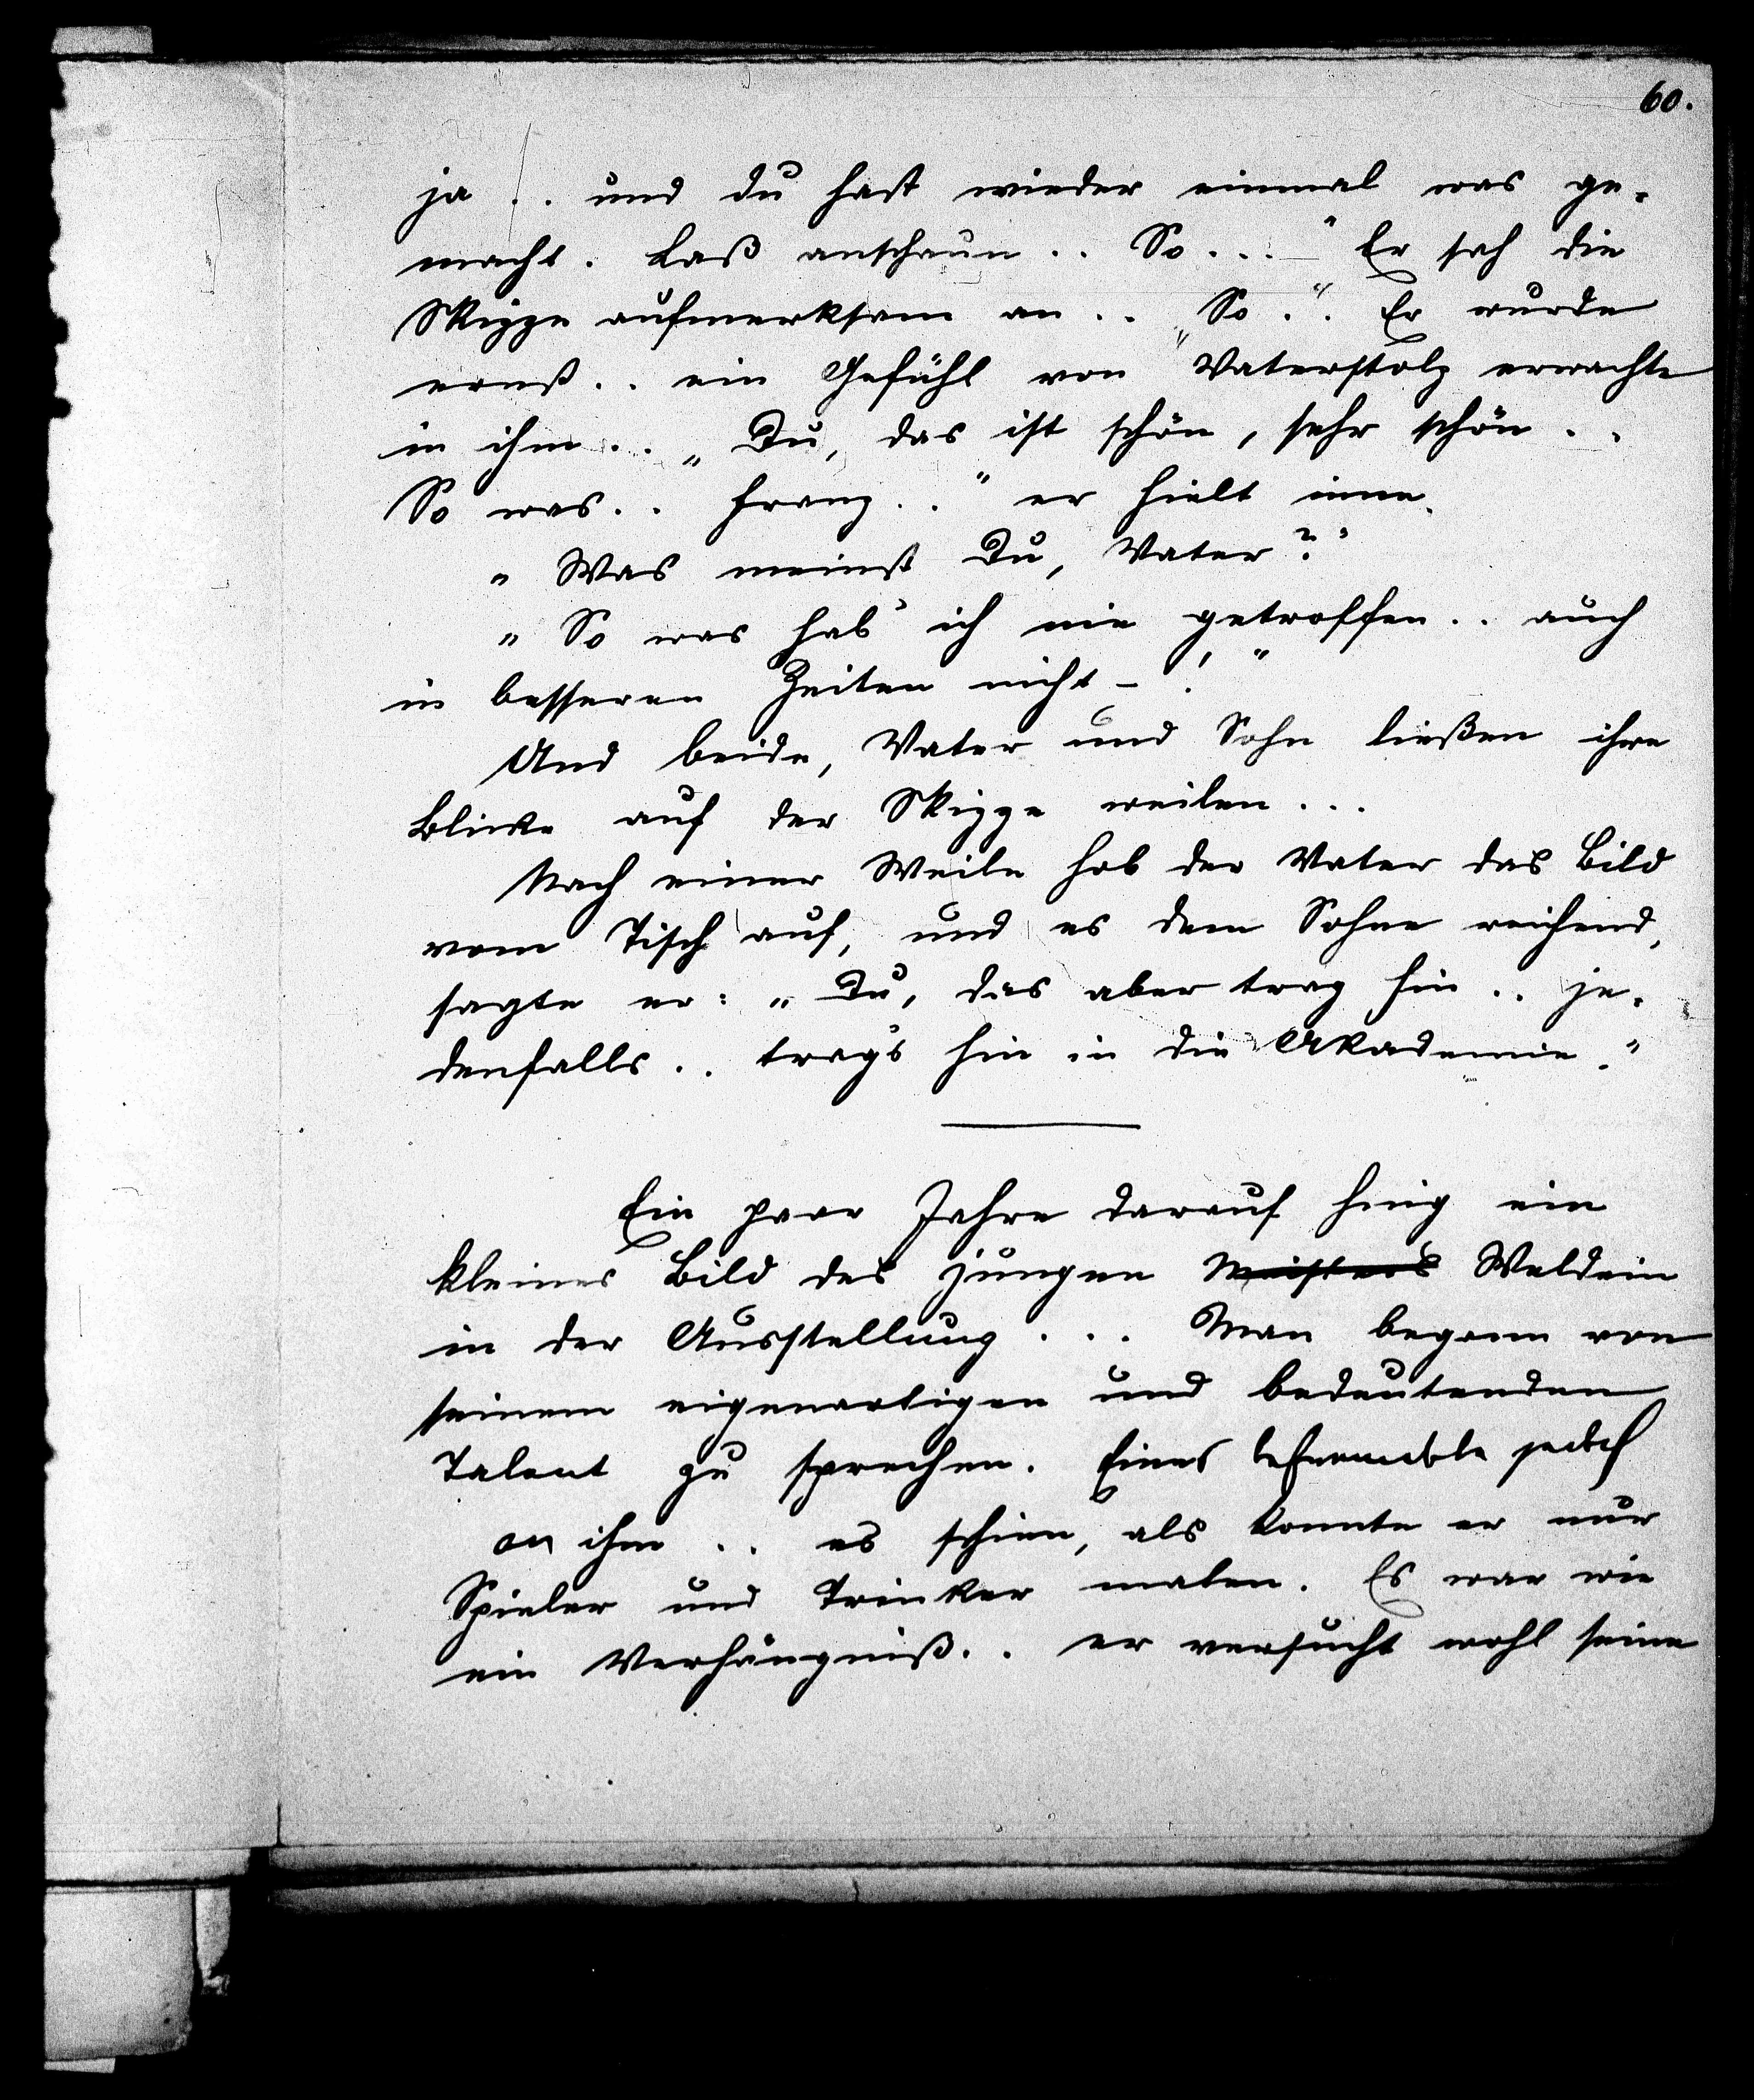 60.
ja .. und du hast wieder einmal was ge-
macht. Laß anschaun .. So ...." Er sah die
Skizze aufmerksam an .. „So .." Er wurde
ernst .. ein Gefühl von Vaterstolz erwachte
in ihm .. „Du, das ist schön, sehr schön ..
So was .. Franz .." er hielt inne.
„Was meinst Du, Vater?"
„So was hab' ich nie getroffen .. auch
in besseren Zeiten nicht –!"
Und beide, Vater und Sohn ließen ihre
Blicke auf der Skizze weilen ...
Nach einer Weile hob der Vater das Bild
vom Tisch auf, und es dem Sohne reichend,
sagte er: „Du, das aber trag hin .. je-
denfalls .. trag's hin in die Akademie."
Ein paar Jahre darauf hing ein
kleines Bild des jungen Meisters Waldein
in der Ausstellung ... Man begann von
seinem eigenartigen und bedeutenden
Talent zu sprechen. Eines jedoch
an ihm .. es schien, als konnte er nur
Spieler und Trinker malen. Es war wie
ein Verhängniß .. er versucht wohl seine